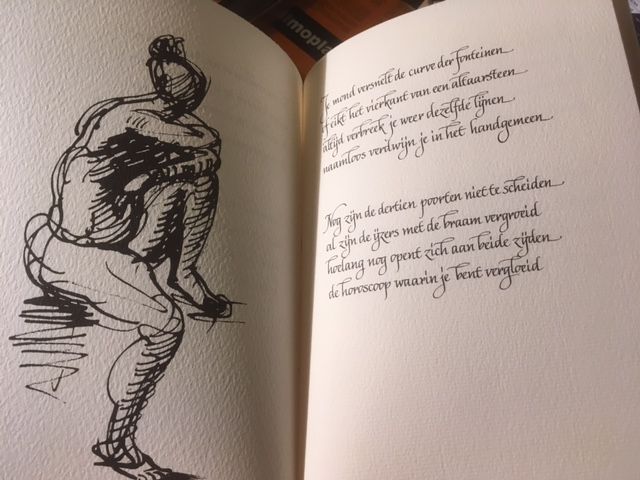 mopla
Je mond versnelt de curve der fonteinen
of eikt het vierkant van een altaarsteen
altijd verbreek je weer dezelfde lijnen
naamloos verdwijn je in het handgemeen
Nog zijn de dertien poorten niet te scheiden
al zijn de ijzers met de braam vergroeid
hoelang nog opent zich aan beide zijden
de horoscoop waarin je bent vergloeid